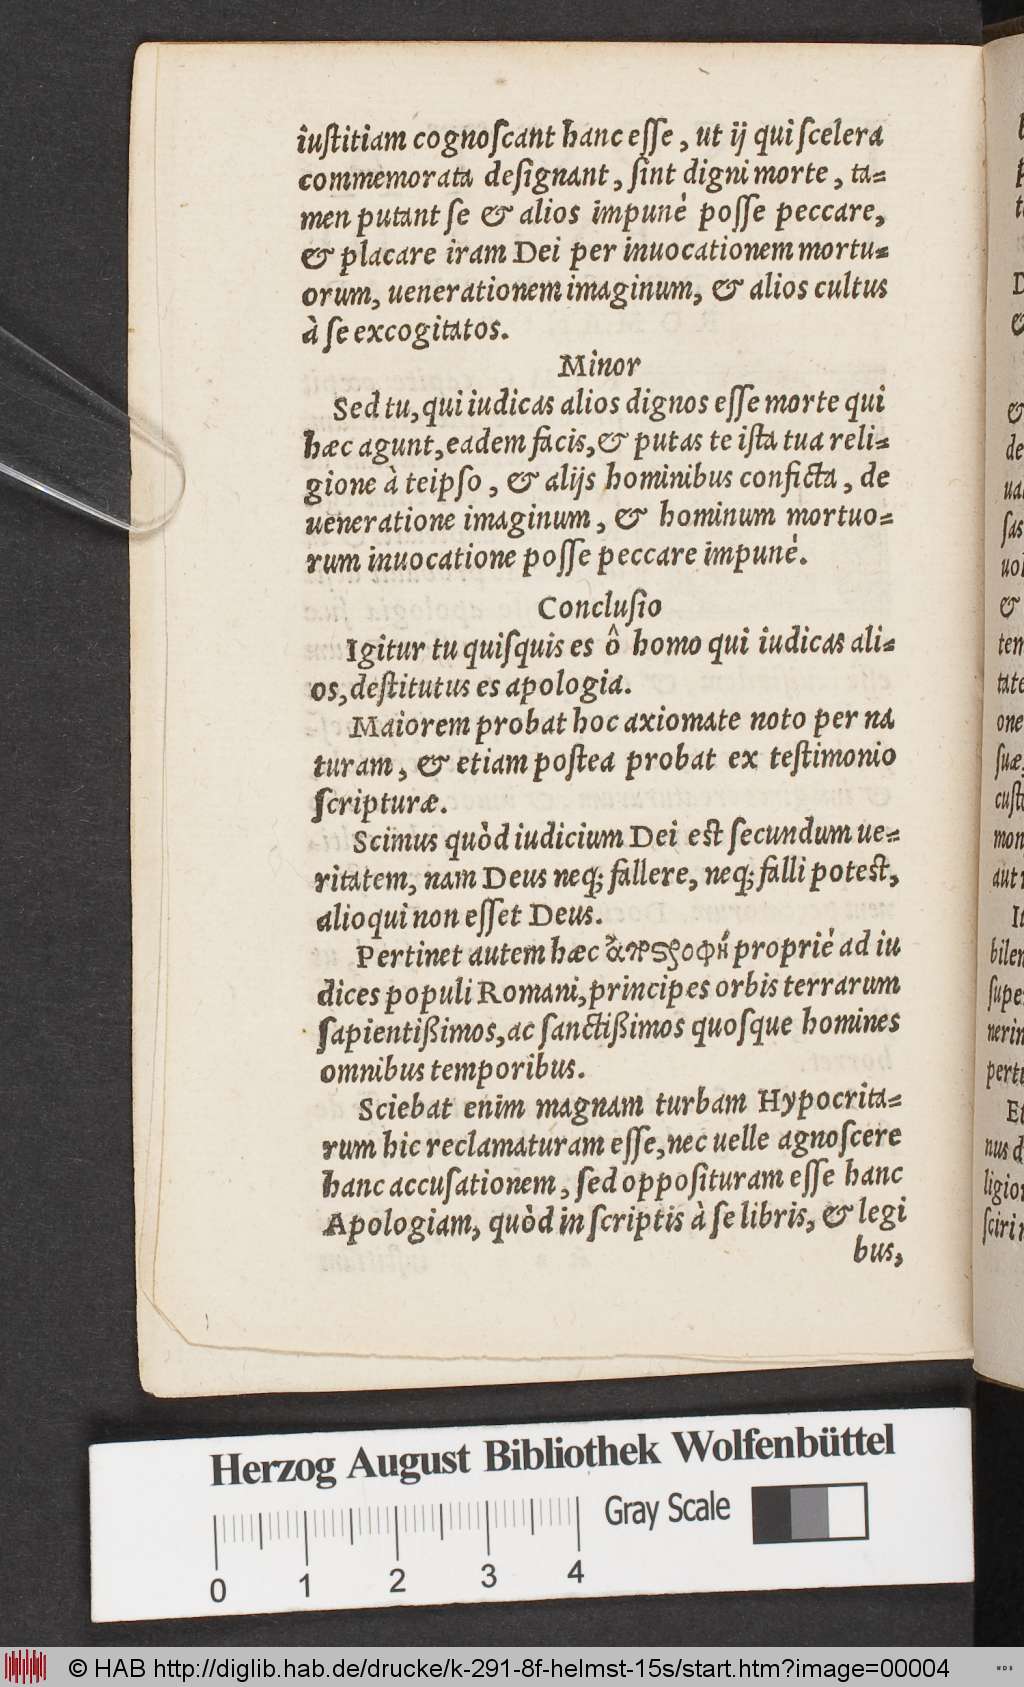 iuſtitiam cognoſcant hanc eſſe, ut ij qui ſcelera
commemorata deſignant, ſint digni morte, ta=
men putant ſe & alios impunè poſſe peccare,
& placare iram Dei per inuocationem mortu=
orum, uenerationem imaginum, & alios cultus
à ſe excogitatos.
Minor
Sed tu, qui iudicas alios dignos eſſe morte qui
hæc agunt, eadem facis, & putas te iſta tua reli=
gione à teipſo, & alijs hominibus conficta, de
ueneratione imaginum, & hominum mortuo=
rum inuocatione poſſe peccare impunè.
Concluſio
Igitur tu quiſquis es ô homo qui iudicas ali=
os, deſtitutus es apologia.
Maiorem probat hoc axiomate noto per na
turam, & etiam poſtea probat ex teſtimonio
ſcripturæ.
Scimus quòd iudicium Dei eſt ſecundum ue=
ritatem, nam Deus neq; fallere, neq; falli poteſt,
alioqui non eſſet Deus.
Pertinet autem hæc ἀποστροφὴ propriè ad iu
dices populi Romani, principes orbis terrarum
ſapientißimos, ac ſanctißimos quoſque homines
omnibus temporibus.
Sciebat enim magnam turbam Hypocrita=
rum hic reclamaturam eſſe, nec uelle agnoſcere
hanc accuſationem, ſed oppoſituram eſſe hanc
Apologiam, quòd in ſcriptis à ſe libris, & legi
bus,
Herzog August Bibliothek Wolfenbüttel
Gray Scale
0 1 2 3 4
© HAB http://diglib.hab.de/drucke/k-291-8f-helmst-15s/start.htm?image=00004